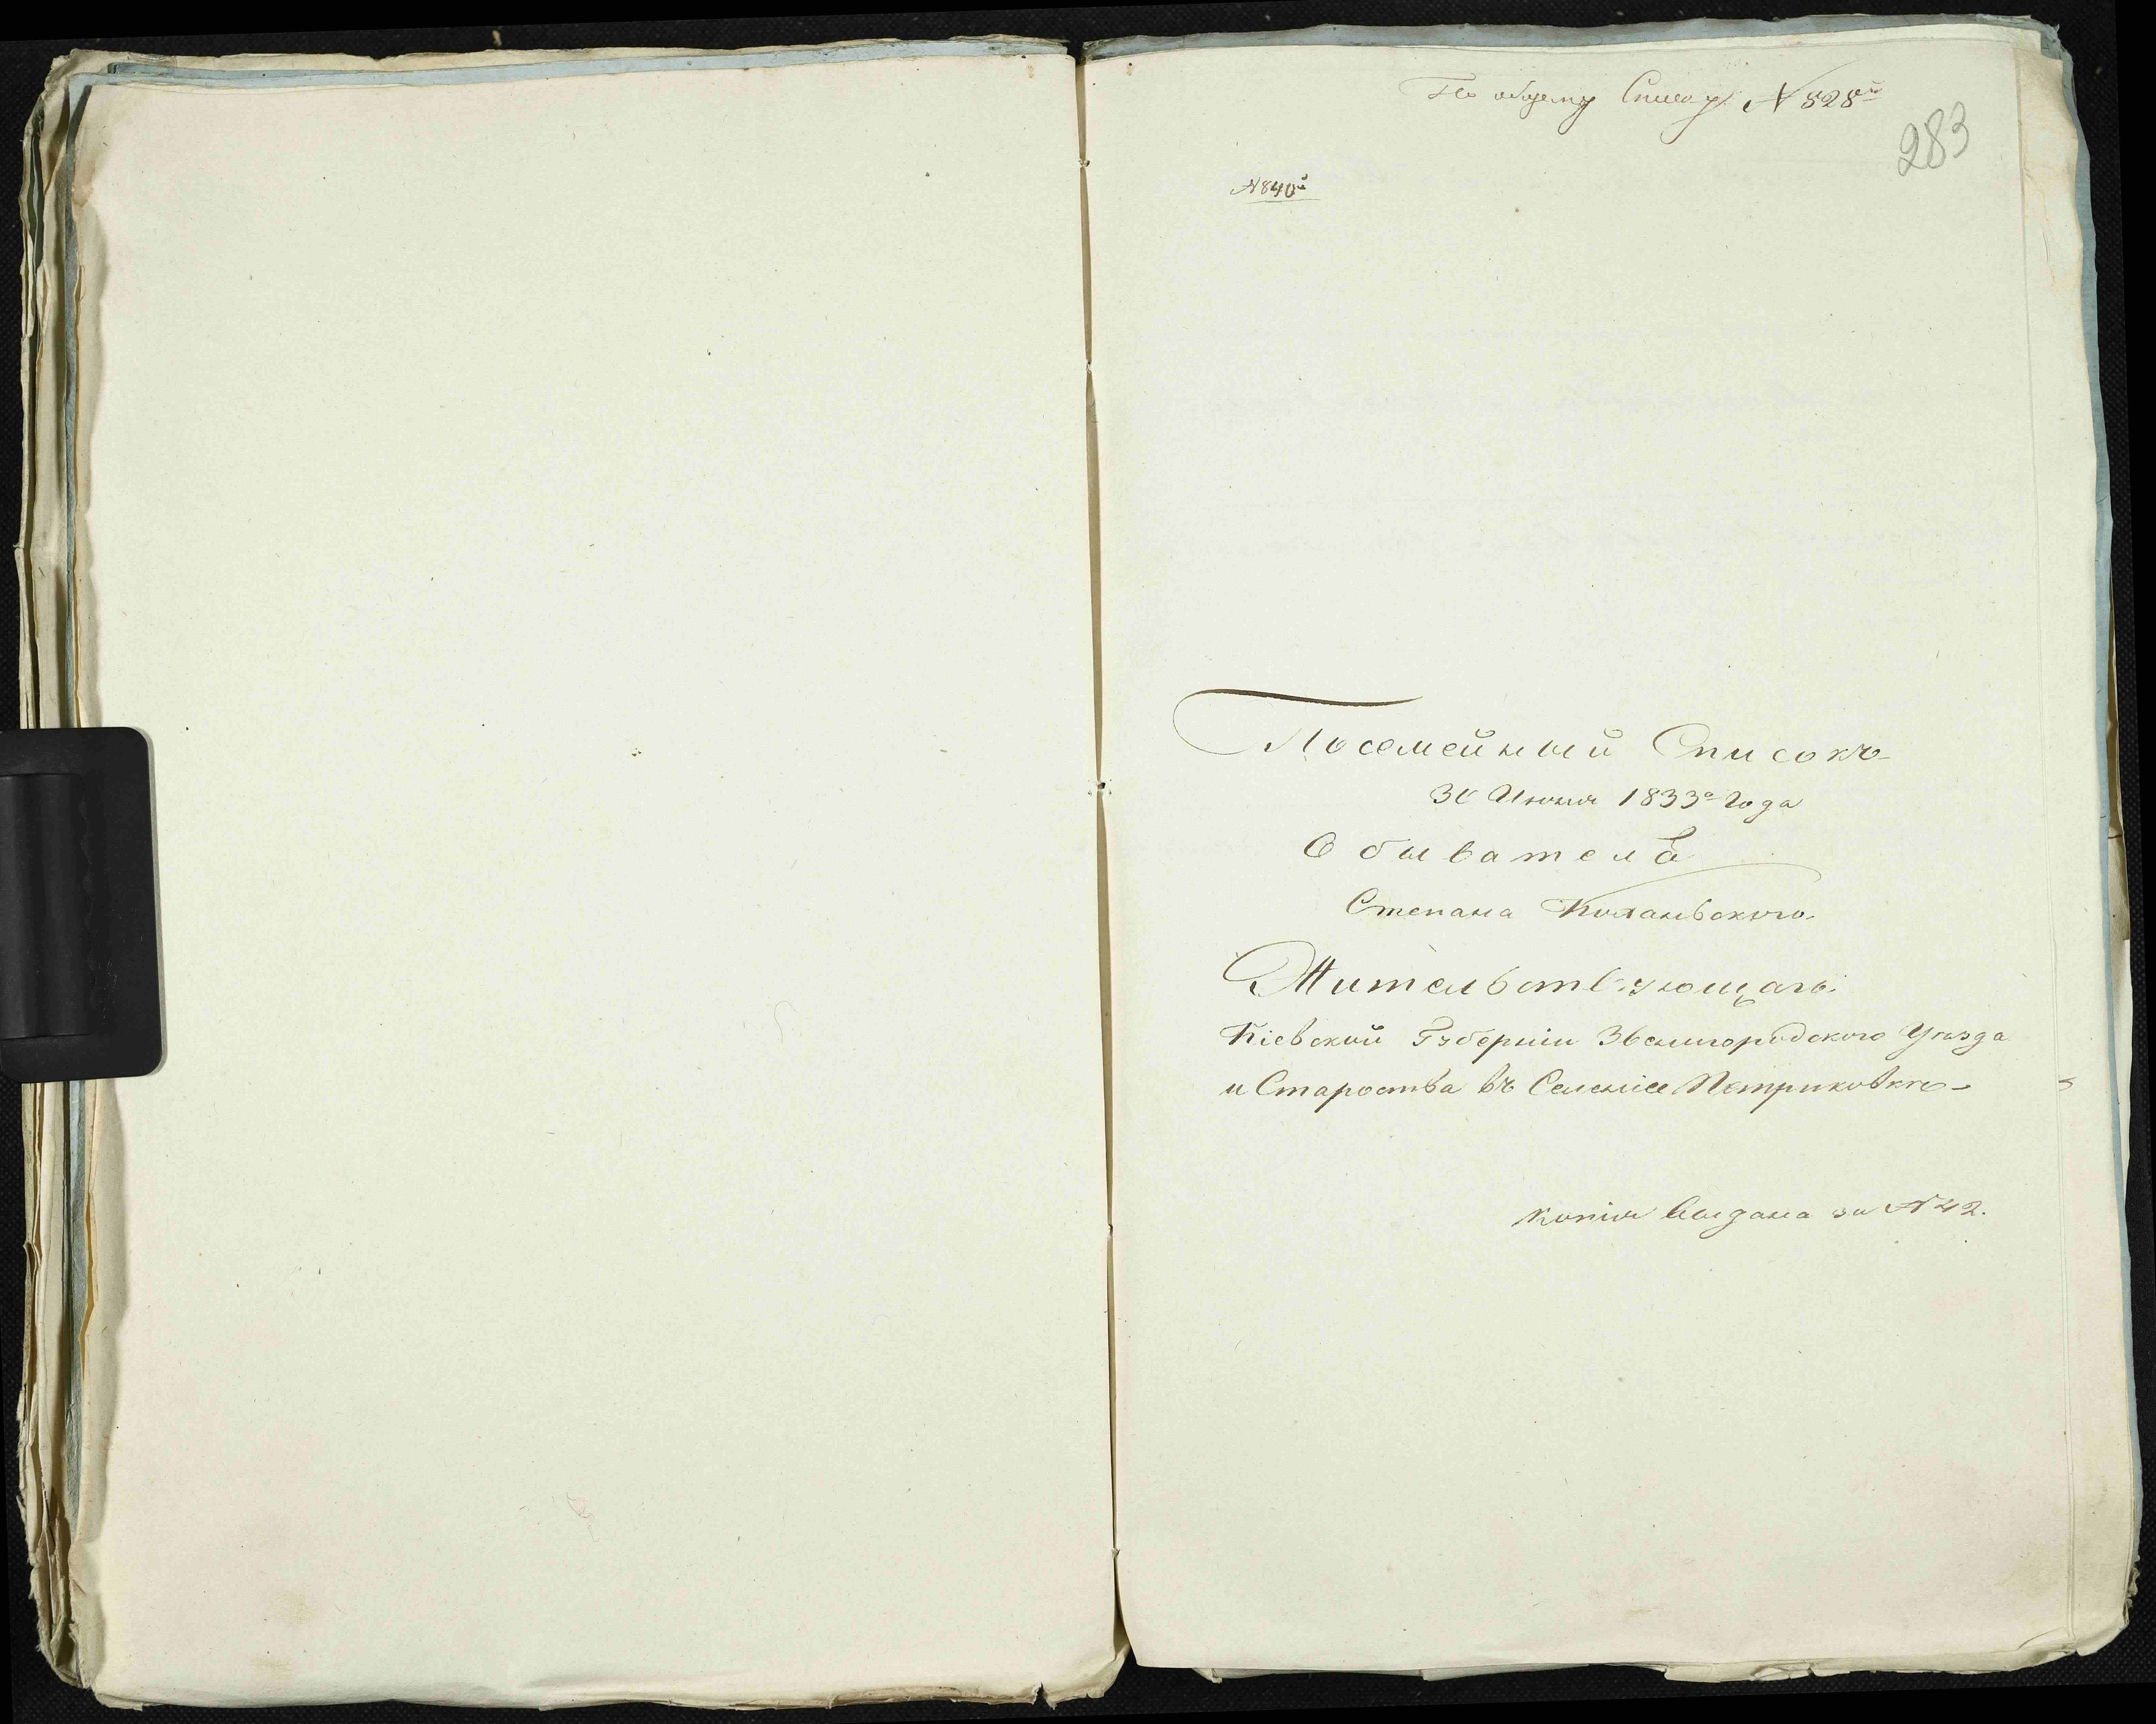 По общему Списку № 828ой
283
№ 840й
Посемейный Списокъ
30 Июня 1833го Года
Обывателя
Степана
Жительствующаго
Кіевской Губерніи Звенигородского Уѣзда
и Староства въ Селеніи Петриковкѣ
копія выдана за № 42.